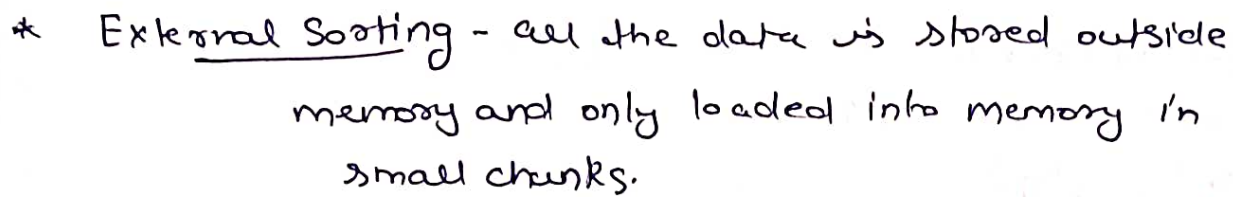 * External Sorting - all the data is stored outside
memory and only loaded into memory in
small chunks.